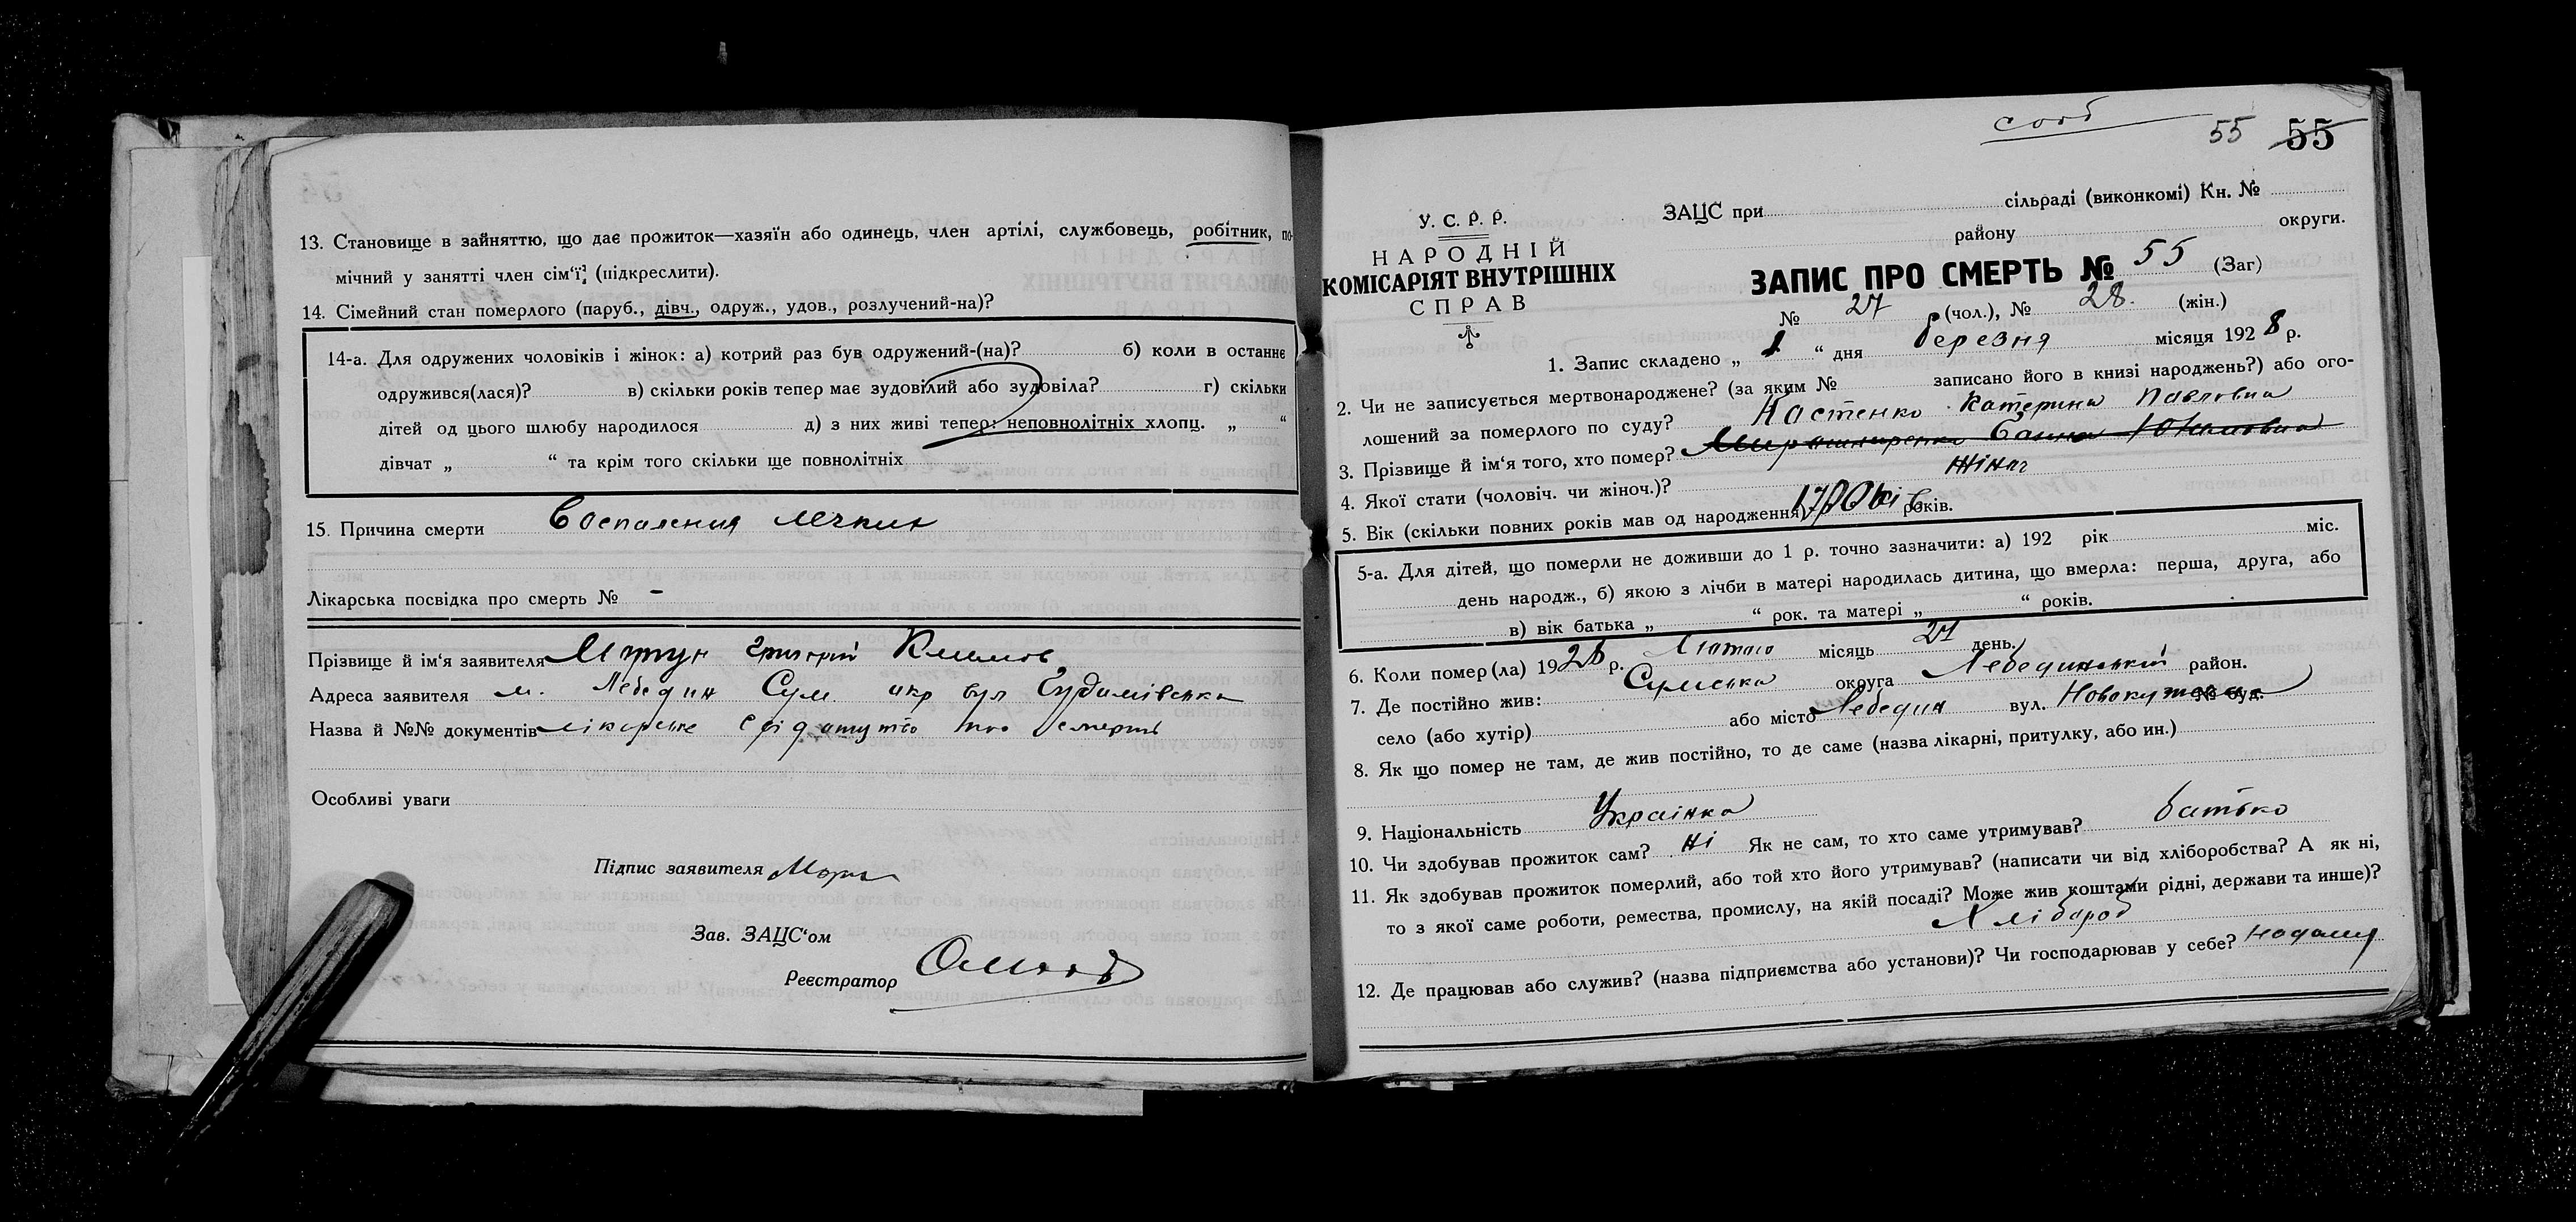 13. Становище в зайняттю, що дає прожиток—хазяїн або одинець, член артілі, службовець, робітник, по-
мічний у занятті член сім'ї, (підкреслити).
14. Сімейний стан померлого (паруб., дівч., одруж., удов., розлучений-на)?
14-а. Для одружених чоловіків і жінок: а) котрий раз був одружений-(на)? б) коли в останнє
одружився(лася)? в) скільки років тепер має зудовілий або зудовіла? г) скільки
дітей од цього шлюбу народилося д) з них живі тепер: неповнолітніх хлопц. „ “
дівчат „ “ та крім того скільки ще повнолітніх
15. Причина смерти Воспаления
Лікарська посвідка про смерть № -
Прізвище й ім'я заявителя Григорій Климов
Адреса заявителя м. Лебедин Сум. окр вул
Назва й №№ документів лікарське про смерть
Особливі уваги
Підпис заявителя
Зав. ЗАЦС'ом
Реєстратор
сооб
55 55
У. С. Р. Р.
НАРОДНІЙ
КОМІСАРІЯТ ВНУТРІШНІХ
СПРАВ
ЗАЦС при сільраді (виконкомі) Кн. №
району округи.
ЗАПИС ПРО СМЕРТЬ № 55 (Заг)
№ 27 (чол.), № 28. (жін.)
1. Запис складено „ 1 “ дня березня місяця 1928 р.
2. Чи не записується мертвонароджене? (за яким № записано його в книзі народжень?) або ого-
лошений за померлого по суду? Костенко Катерина Павловна
3. Прізвище й ім'я того, хто помер?
4. Якої стати (чоловіч. чи жіноч.)? жіноч
5. Вік (скільки повних років мав од народження) років.
5-а. Для дітей, що померли не доживши до 1 р. точно зазначити: а) 192 рік міс.
день народж., б) якою з лічби в матері народилась дитина, що вмерла: перша, друга, або
в) вік батька „ “ рок. та матері „ “ років.
6. Коли помер(ла) 1928 р. Лютого місяць день.
7. Де постійно жив: Сумська округа Лебединський район.
село (або хутір) або місто Лебедин вул. № буд.
8. Як що помер не там, де жив постійно, то де саме (назва лікарні, притулку, або ин.)
9. Національність Українка
10. Чи здобував прожиток сам? Ні Як не сам, то хто саме утримував? батько
11. Як здобував прожиток померлий, або той хто його утримував? (написати чи від хліборобства? А як ні,
то з якої саме роботи, ремества, промислу, на якій посаді? Може жив коштами рідні, держави та инше)?
Хлібороб
12. Де працював або служив? (назва підприємства або установи)? Чи господарював у себе?